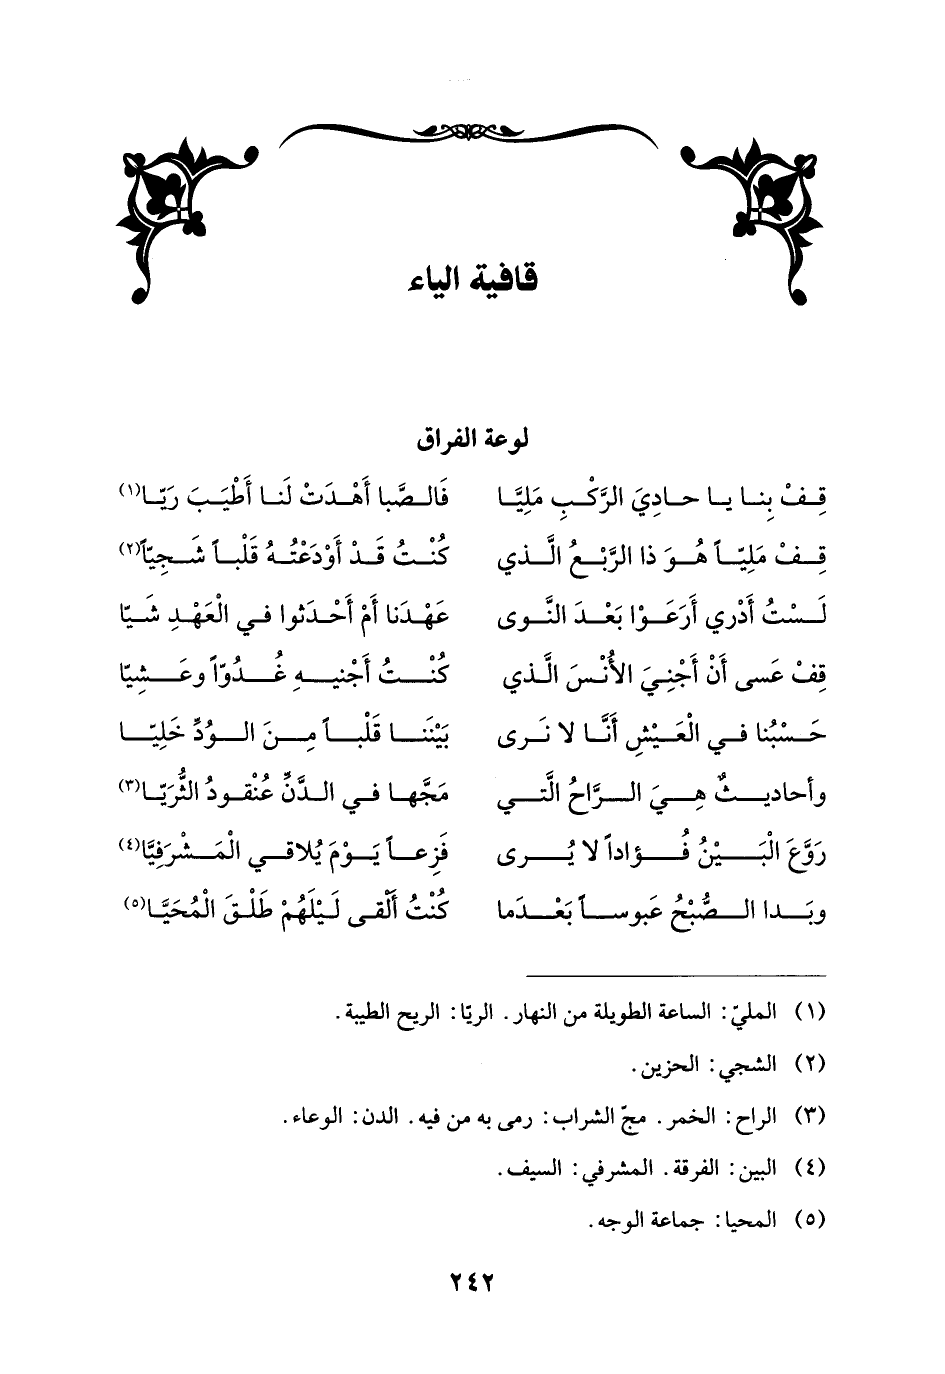 قافية الياء
لوعة الفراق
قِفْ بِنا يا حادِيَ الرَّكْبِ مَلِيَّا فَالصَّبا أَهْدَتْ لَنا أَطْيَبَ رَيّا(١)
قِفْ مَلِيّاً هُوَ ذا الرَّبْعُ الَّذي كُنْتُ قَدْ أَوْدَعْتُهُ قَلْباً شَجِيّاً(٢)
لَسْتُ أَدْري أَرَعَوْا بَعْدَ النَّوى عَهْدَنا أَمْ أَحْدَثوا في الْعَهْدِ شَيّا
قِفْ عَسى أَنْ أَجْنِيَ الأُنْسَ الَّذي كُنْتُ أَجْنيهِ غُدُوّاً وعَشِيّا
حَسْبُنا في الْعَيْشِ أَنَّا لا نَرى بَيْنَنا قَلْباً مِنَ الوُدِّ خَلِيّا
وأحاديثٌ هِيَ الرَّاحُ الَّتي مَجَّها في الدَّنِّ عُنْقودُ الثُّرَيّا(٣)
رَوَّعَ الْبَيْنُ فُؤاداً لا يُرى فَزِعاً يَوْمَ يُلاقي الْمَشْرَفِيَّا(٤)
وبَدا الصُّبْحُ عَبوساً بَعْدَما كُنْتُ أَلْقى لَيْلَهُمْ طَلْقَ الْمُحَيَّا(٥)
(١) المليّ: الساعة الطويلة من النهار. الريّا: الريح الطيبة.
(٢) الشجي: الحزين.
(٣) الراح: الخمر. مجّ الشراب: رمى به من فيه. الدن: الوعاء.
(٤) البين: الفرقة. المشرفي: السيف.
(٥) المحيا: جماعة الوجه.
٢٤٢